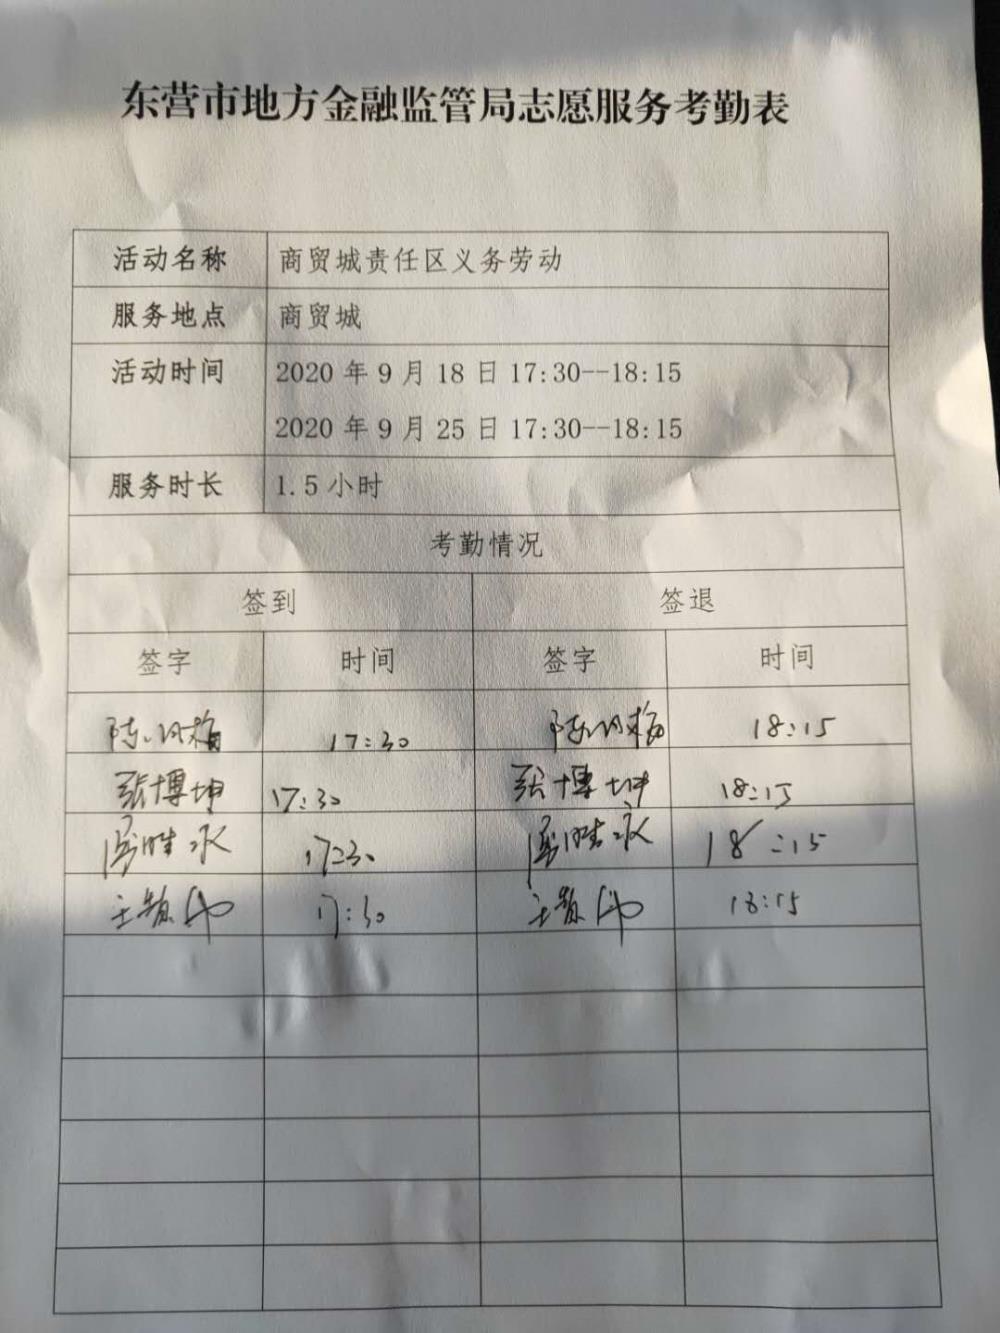 东营市地方金融监管局志愿服务考勤表
活动名称 商贸城责任区义务劳动
服务地点 商贸城
活动时间 2020 年 9 月 18 日 17:30--18:15
2020 年 9 月 25 日 17:30--18:15
服务时长 1.5 小时
考勤情况
签到 签退
签字 时间 签字 时间
17:30 18:15
张博坤 17:30 张博坤 18:15
17:30 18:15
17:30 18:15